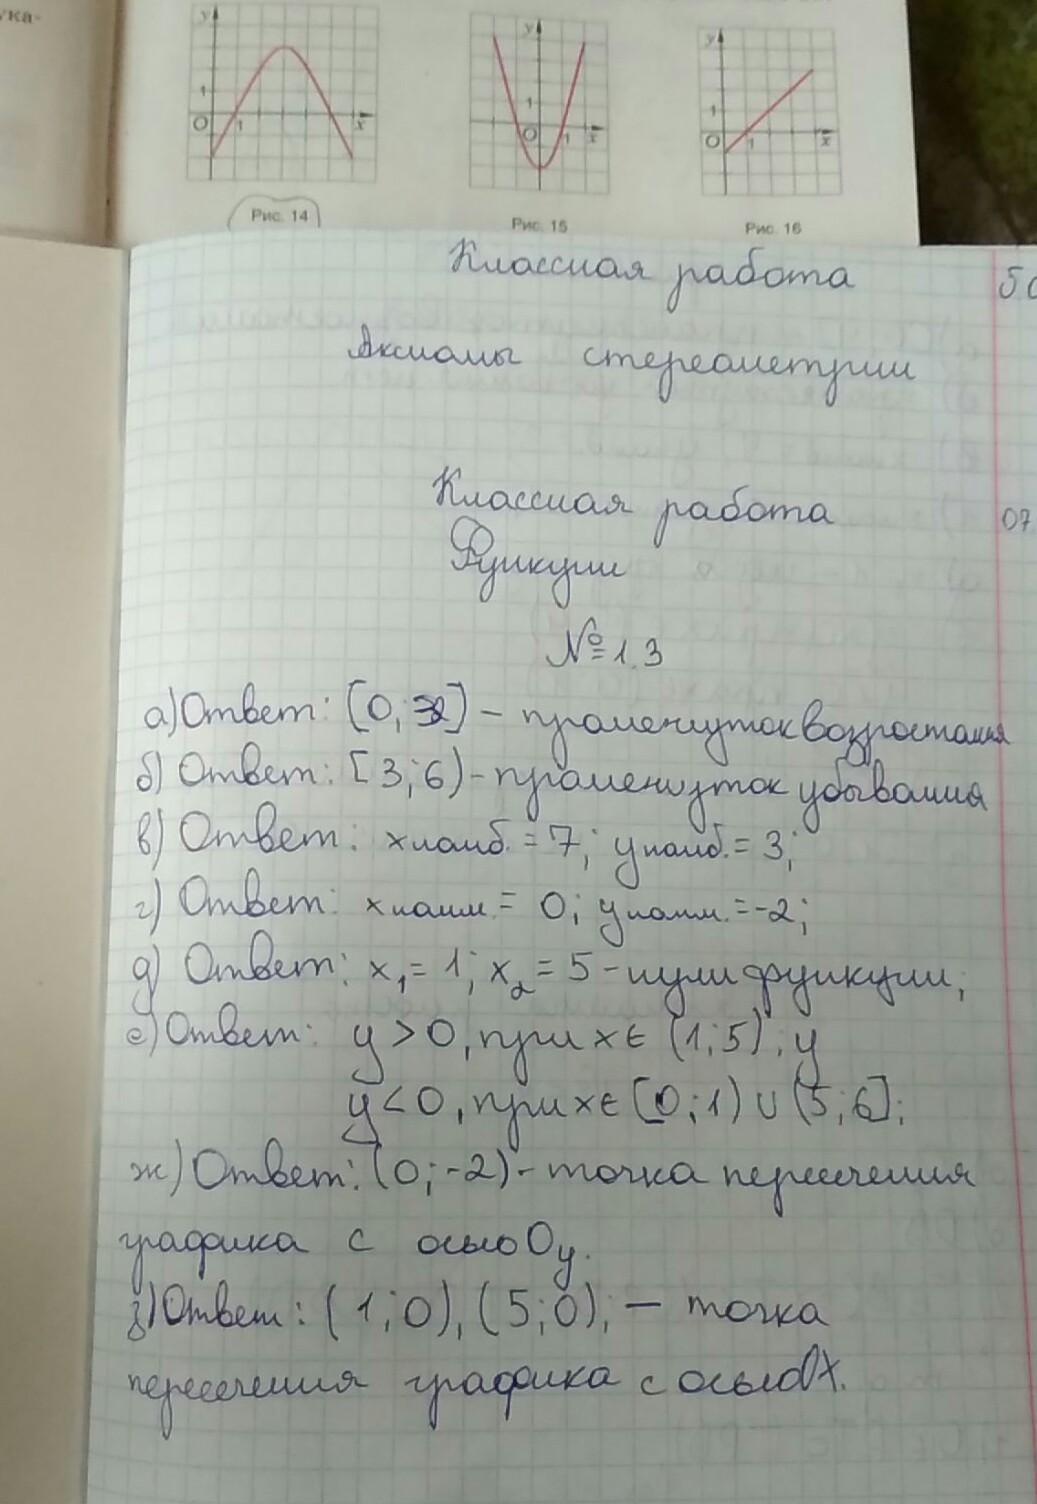 ука-
y y y
1 1 1
O 1 x O 1 x O 1 x
Рис. 14 Рис. 15 Рис. 16
Классная работа
Аксиомы стереометрии
Классная работа 07
Функции
№ 1.3
а) Ответ: [0; 3] – промежуток возростания
б) Ответ: [3; 6) – промежуток убывания
в) Ответ: xнаиб. = 7; yнаиб. = 3;
г) Ответ: xнаим. = 0; yнаим. = -2;
д) Ответ: x₁ = 1; x₂ = 5 – нули функции;
е) Ответ: y > 0, при x ∈ (1; 5); y
y < 0, при x ∈ [0; 1) ∪ (5; 6];
ж) Ответ: (0; -2) - точка пересечения
графика с осью Oy.
з) Ответ: (1; 0), (5; 0); — точка
пересечения графика с осью OX.